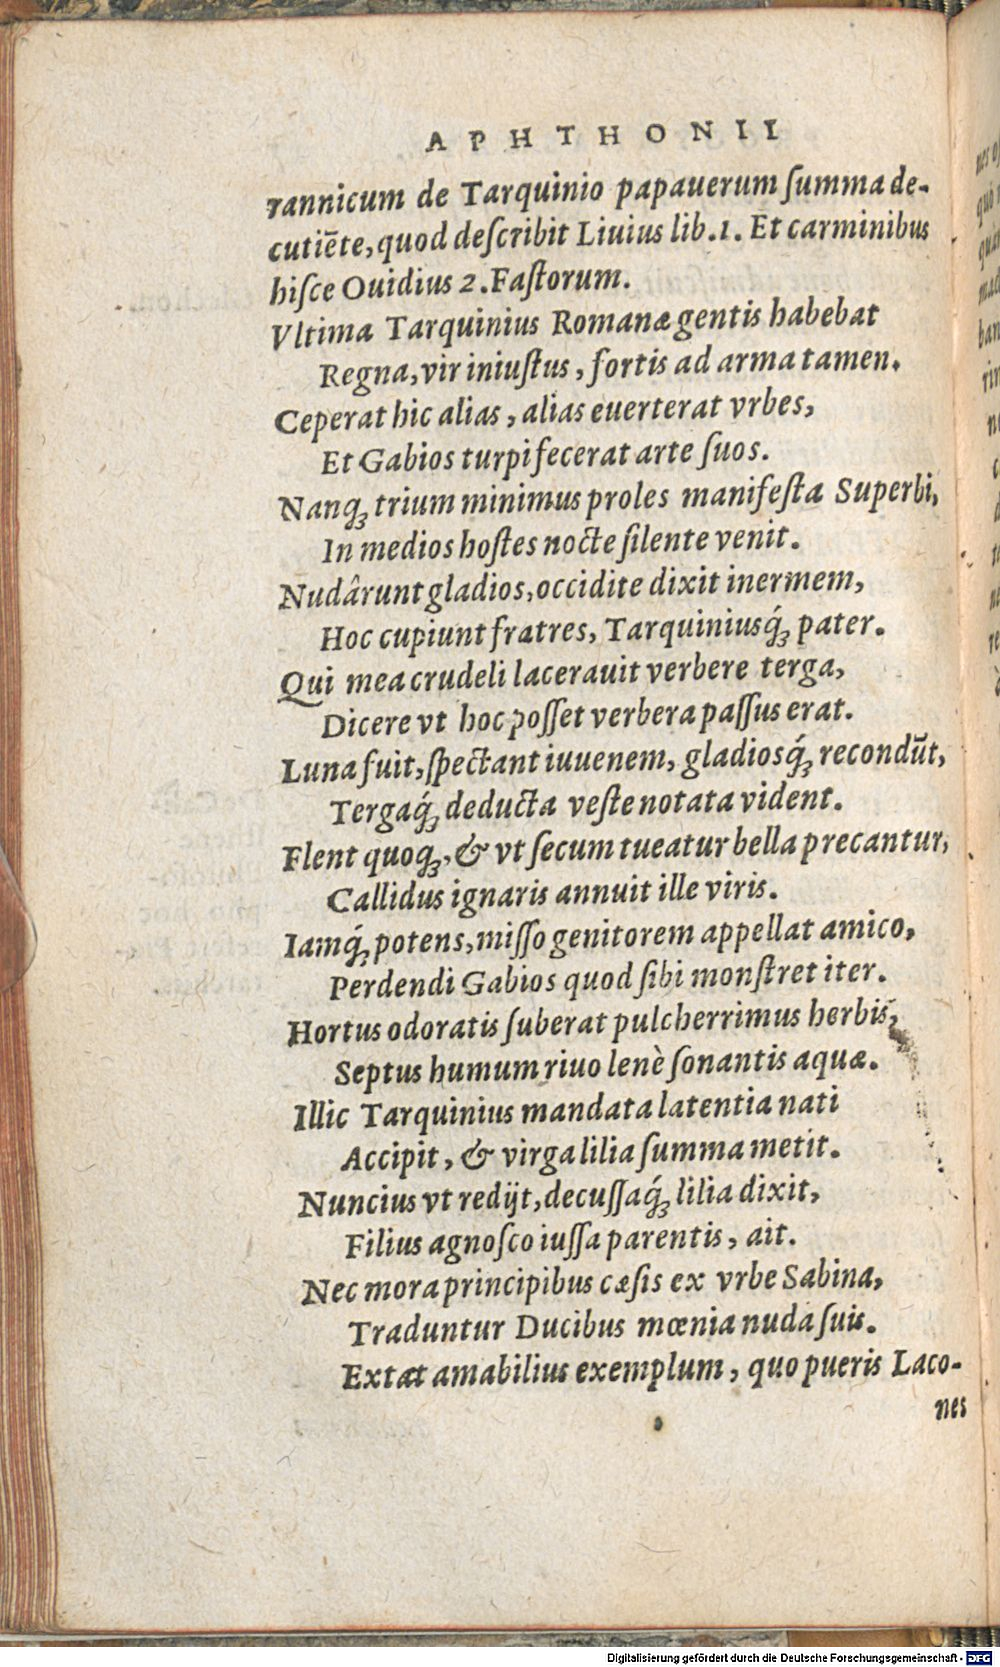 APHTHONII
rannicum de Tarquinio papauerum ſumma de-
cutiēte, quod deſcribit Liuius lib. 1. Et carminibus
hiſce Ouidius 2. Faſtorum.
Vltima Tarquinius Romanæ gentis habebat
Regna, vir iniuſtus, fortis ad arma tamen.
Ceperat hic alias, alias euerterat vrbes,
Et Gabios turpi fecerat arte ſuos.
Nanq́; trium minimus proles manifeſta Superbi,
In medios hoſtes nocte ſilente venit.
Nudârunt gladios, occidite dixit inermem,
Hoc cupiunt fratres, Tarquiniusq́; pater.
Qui mea crudeli lacerauit verbere terga,
Dicere vt hoc poſſet verbera paſſus erat.
Luna fuit, ſpectant iuuenem, gladiosq́; recondūt,
Tergaq́; deducta veſte notata vident.
Flent quoq;, & vt ſecum tueatur bella precantur,
Callidus ignaris annuit ille viris.
Iamq́; potens, miſſo genitorem appellat amico,
Perdendi Gabios quod ſibi monſtret iter.
Hortus odoratis ſuberat pulcherrimus herbis,
Septus humum riuo lenè ſonantis aquæ.
Illic Tarquinius mandata latentia nati
Accipit, & virga lilia ſumma metit.
Nuncius vt redijt, decuſſaq́; lilia dixit,
Filius agnoſco iuſſa parentis, ait.
Nec mora principibus cæſis ex vrbe Sabina,
Traduntur Ducibus mœnia nuda ſuis.
Extat amabilius exemplum, quo pueris Laco-
nes
Digitalisierung gefördert durch die Deutsche Forschungsgemeinschaft - DFG